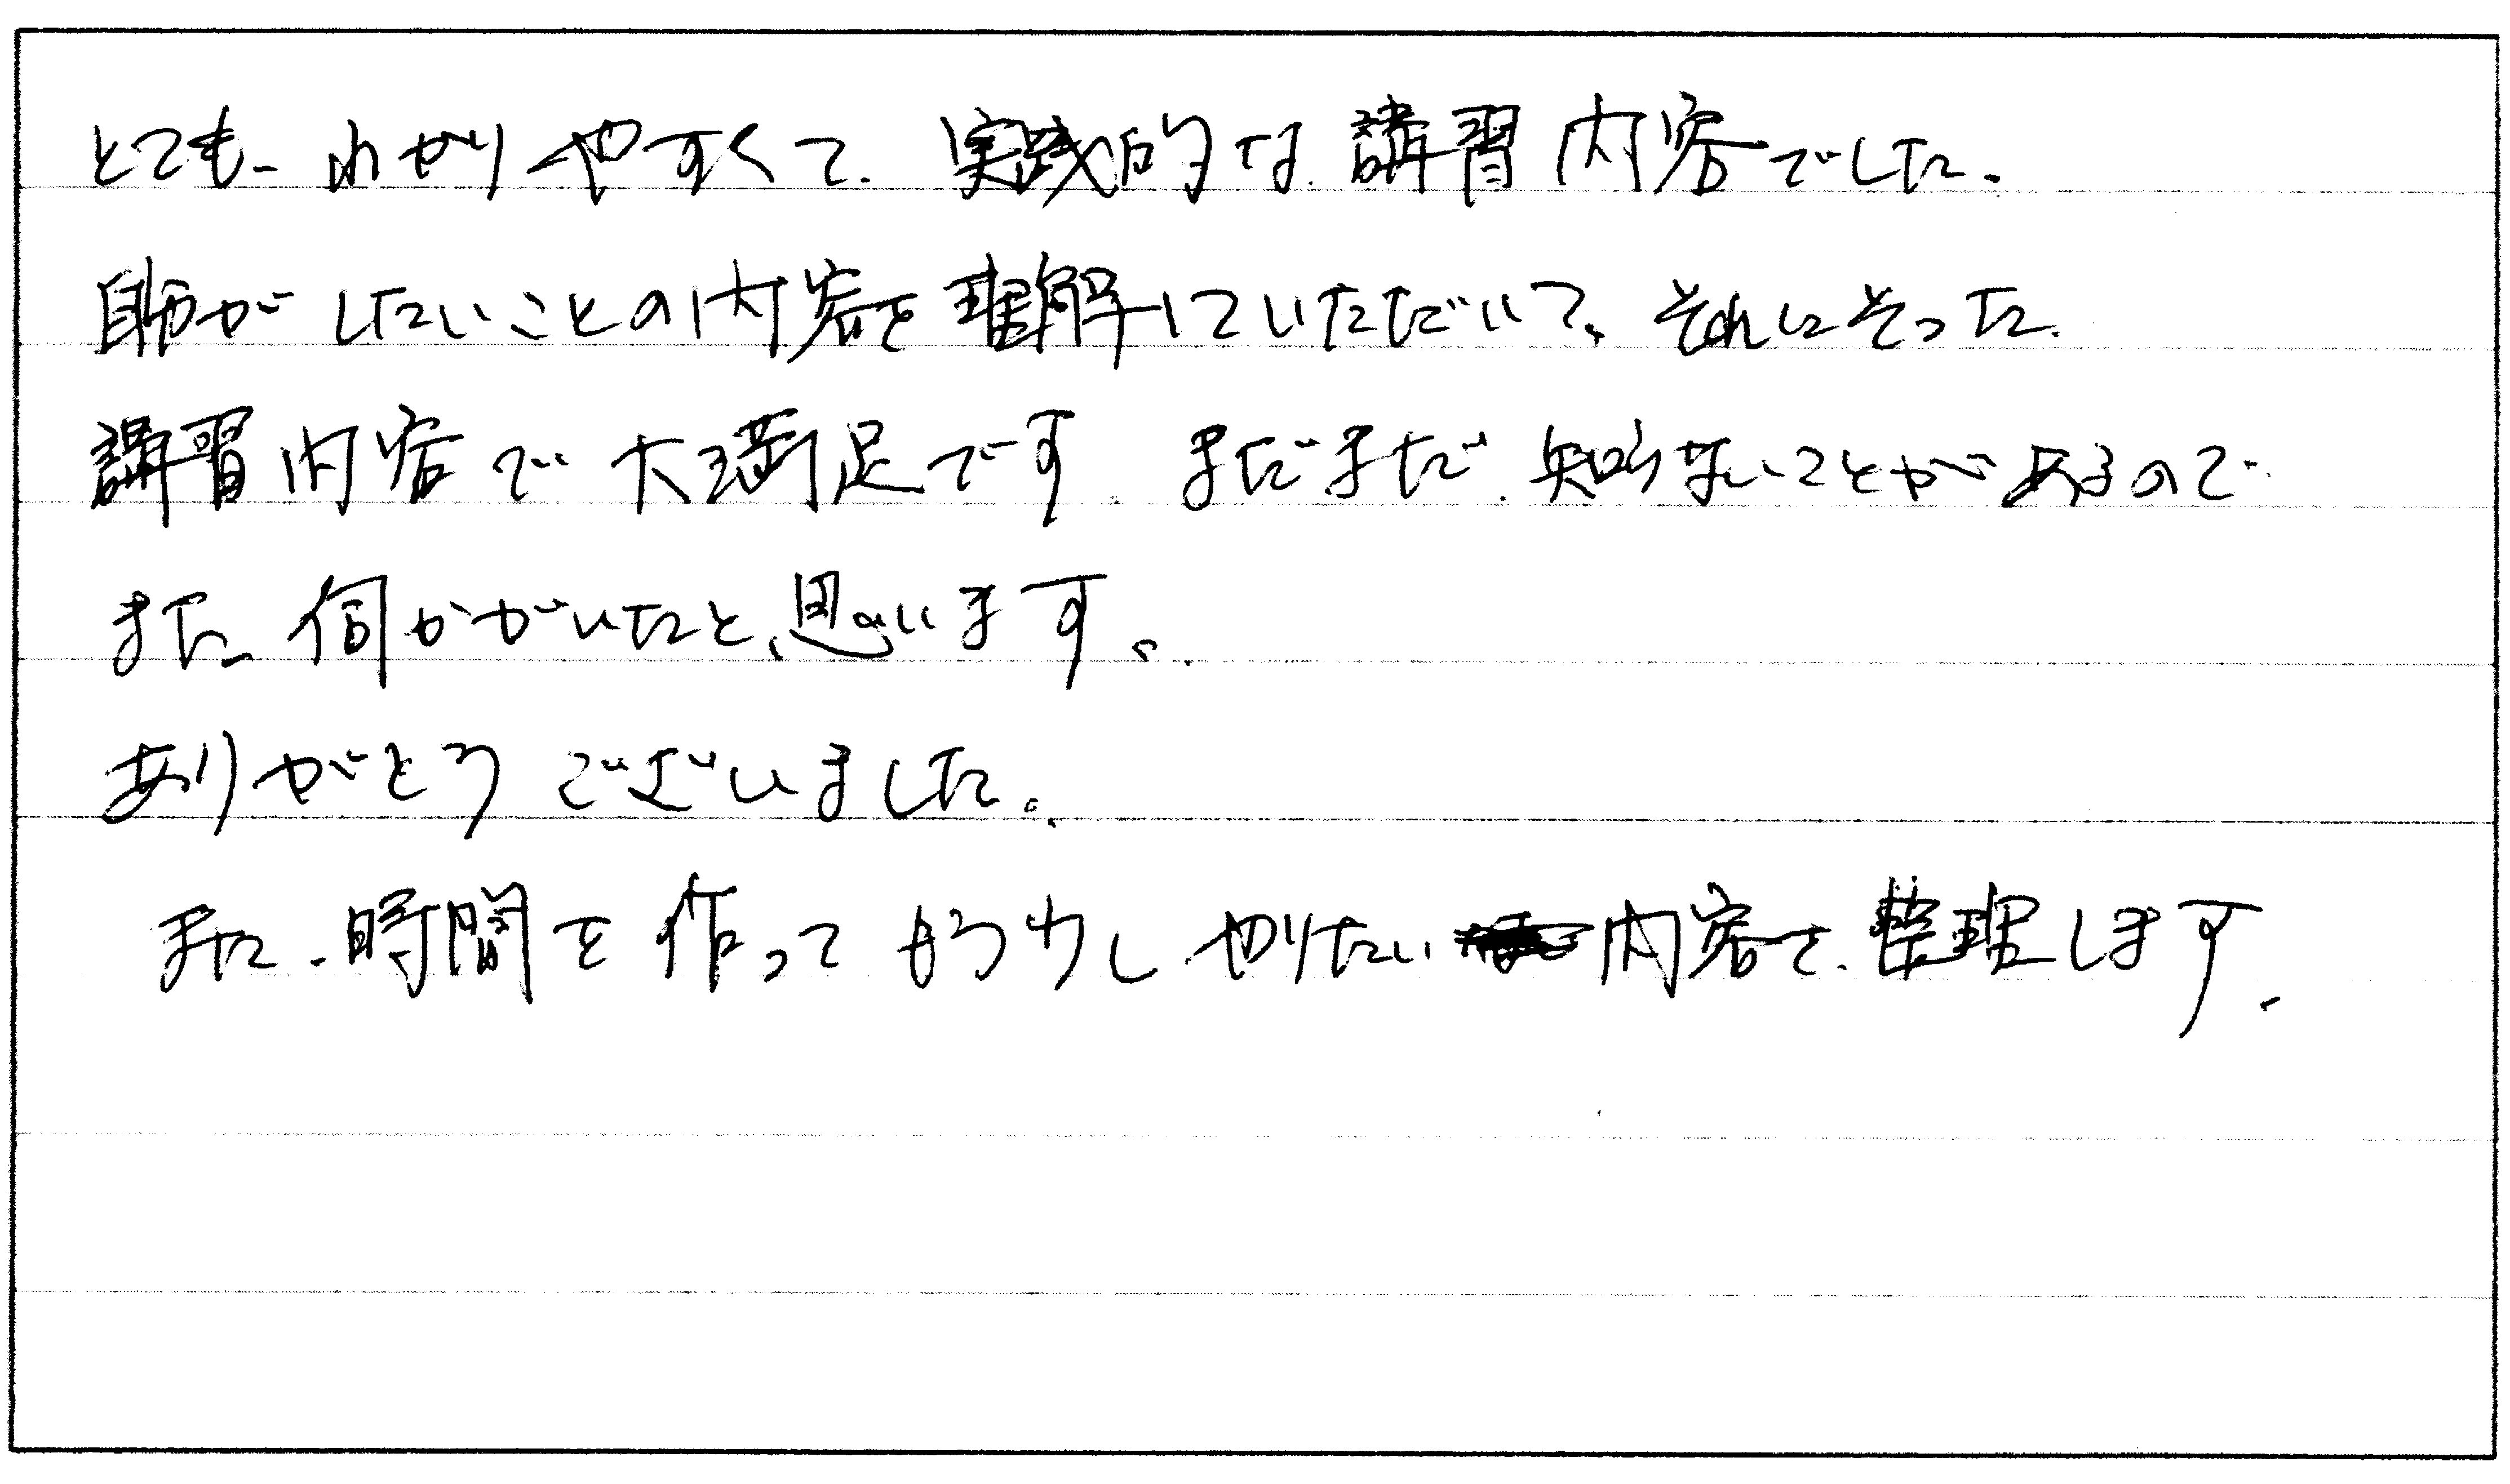 とても、わかりやすくて、実践的な講習内容でした。
自師がしたいことの内容を理解していただいて、それにそった
講習内容で大満足です。まだまだ、知らないことがあるので
また、伺かがいたと思います。
ありがとうございました。
また、時間を作ってもう少しやりたい内容を整理します。